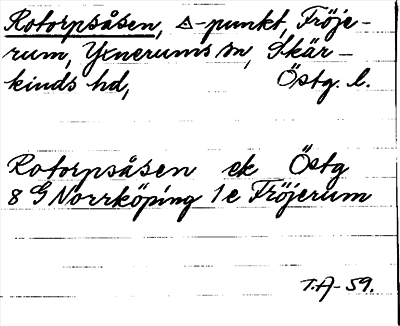 Rotorpsåsen, △-punkt, Fröje-
rum, Yxnerums sn, Skär-
kinds hd, Östg. l.
Rotorpsåsen ek Östg
8 G Norrköping 1e Fröjerum
T.A-59.